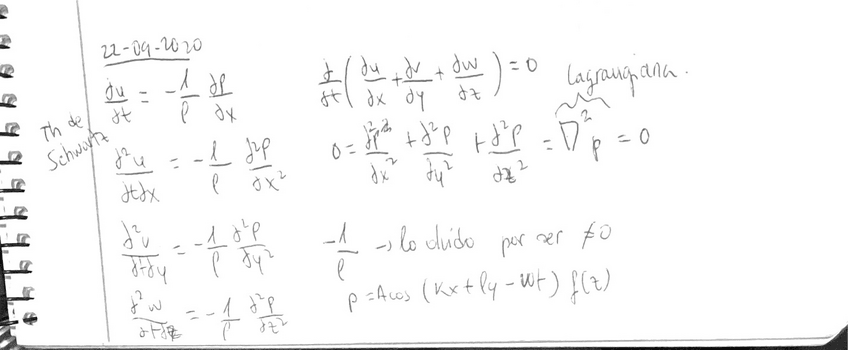 22-09-2020
∂u/∂t = -1/ρ ∂p/∂x
Th de
Schwartz
∂²u/∂t∂x = -1/ρ ∂²p/∂x²
∂²v/∂t∂y = -1/ρ ∂²p/∂y²
∂²w/∂t∂z = -1/ρ ∂²p/∂z²
∂/∂t (∂u/∂x + ∂v/∂y + ∂w/∂z) = 0
Lagrangiana.
0 = ∂²p/∂x² + ∂²p/∂y² + ∂²p/∂z² = ∇²p = 0
-1/ρ → lo divido por ser ≠0
p = A cos (kx + ly - ωt) f(z)